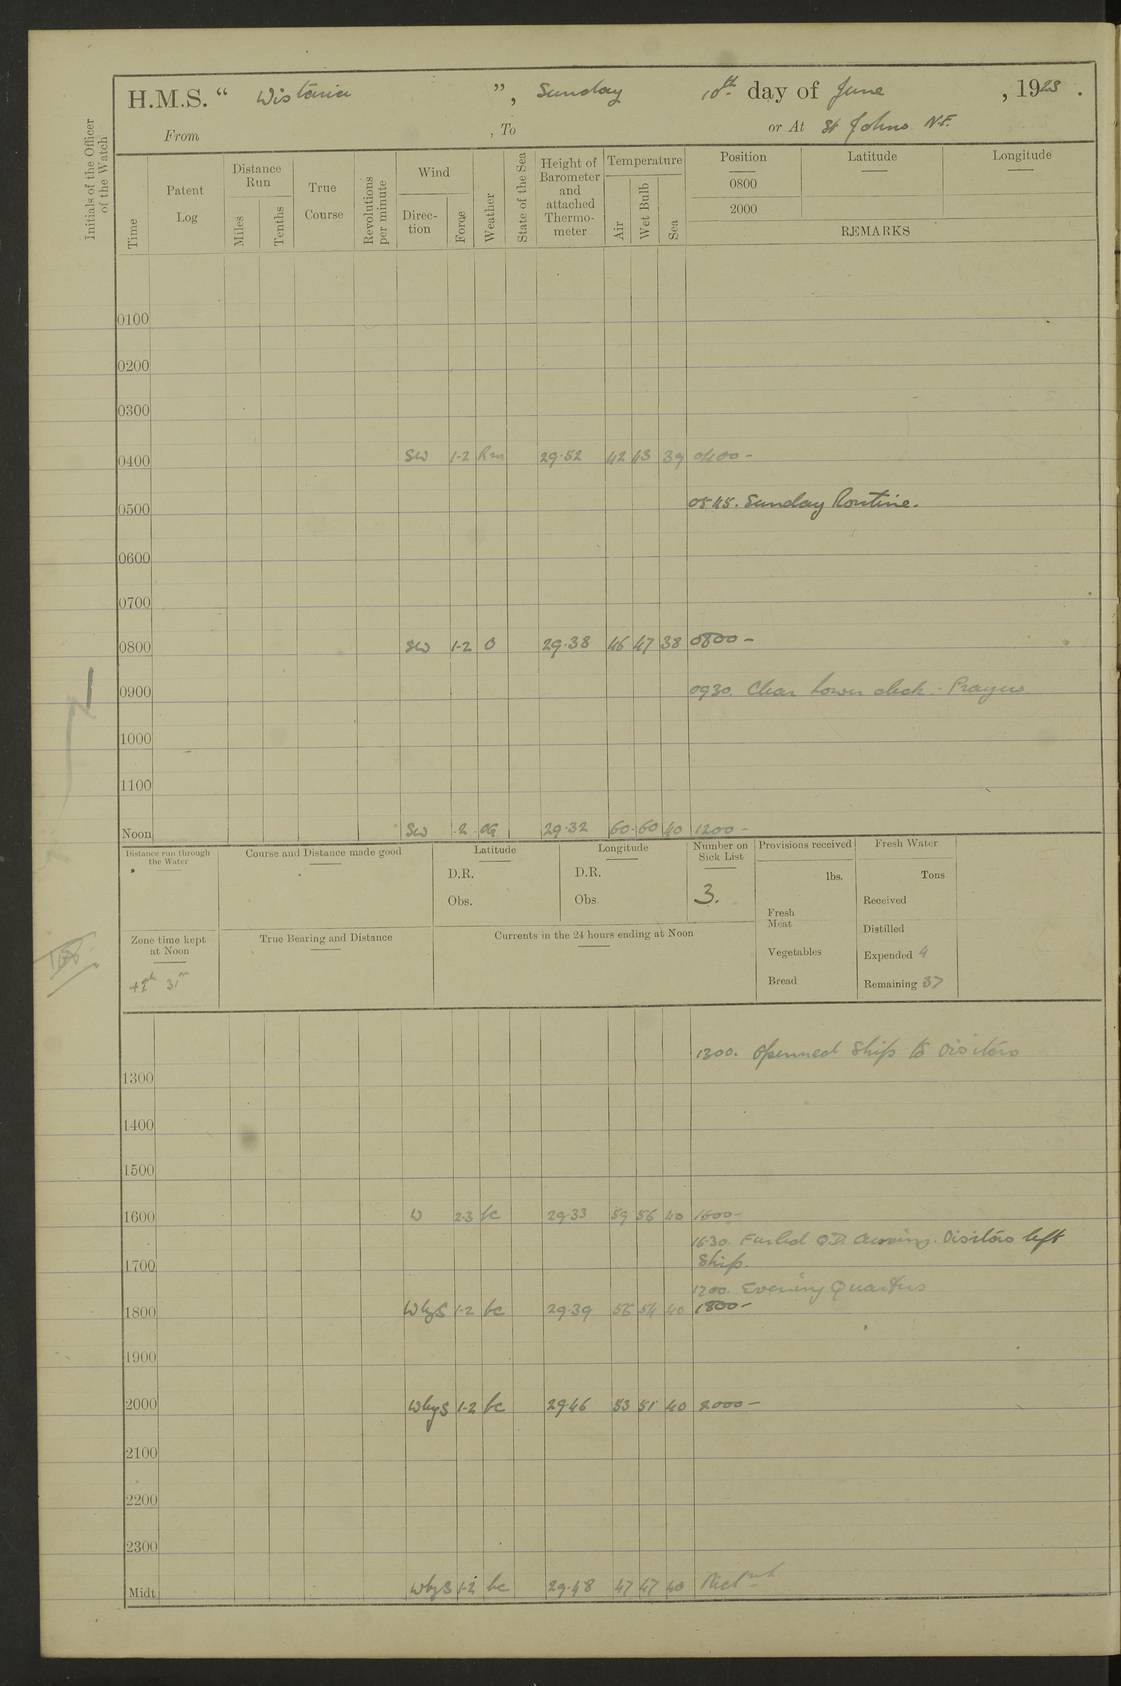 H.M.S. “ Wistaria ”, Sunday 10th day of June , 1923 .
From , To or At St Johns N.F.
Initials of the Officer of the Watch
Time
Patent Log
Distance Run
Miles
Tenths
True Course
Revolutions per minute
Wind
Direction
Force
Weather
State of the Sea
Height of Barometer and attached Thermometer
Temperature
Air
Wet Bulb
Sea
Position Latitude Longitude
0800
2000
REMARKS
0100
0200
0300
0400 SW 1-2 29.52 42 43 39 0400 –
0500 0545. Sunday Routine.
0600
0700
0800 SW 1-2 O 29.38 46 47 38 0800 –
0900 0930. Clear Lower deck – Prayers
1000
1100
Noon SW 2 29.32 60 60 40 1200 –
Distance run through the Water
Course and Distance made good
Latitude
D.R.
Obs.
Longitude
D.R.
Obs.
Number on Sick List
3.
Provisions received
lbs.
Fresh Meat
Vegetables
Bread
Fresh Water
Tons
Received
Distilled
Expended 4
Remaining 37
Zone time kept at Noon
True Bearing and Distance
Currents in the 24 hours ending at Noon
1300. Openned Ship to Visitors
1300
1400
1500
1600 W 2-3 bc 29.33 59 56 40 1600 –
1630. Furled Q.D. Awning. Visitors left
1700 Ship.
1700. Evening Quarters
1800 WbyS 1-2 bc 29.39 56 54 40 1800 –
1900
2000 WbyS 1-2 bc 29.46 53 51 40 2000 –
2100
2200
2300
Midt WbyS 1-2 bc 29.48 47 47 40